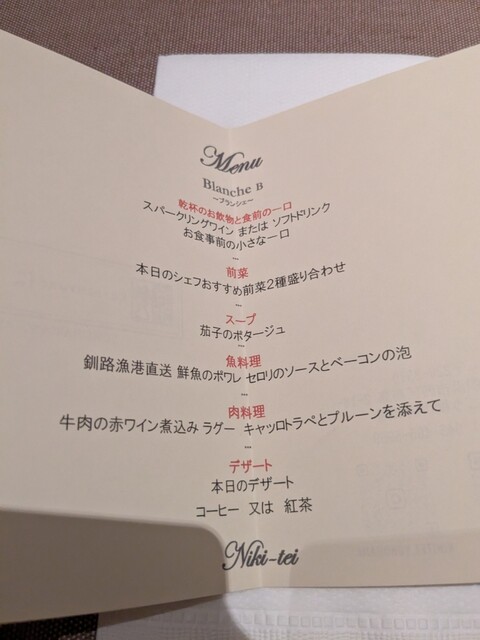 Menu
Blanche B
～ブランシェ～
乾杯のお飲物と食前の一口
スパークリングワイン または ソフトドリンク
お食事前の小さな一口
…
前菜
本日のシェフおすすめ前菜2種盛り合わせ
…
スープ
茄子のポタージュ
…
魚料理
釧路漁港直送 鮮魚のポワレ セロリのソースとベーコンの泡
…
肉料理
牛肉の赤ワイン煮込み ラグー キャッロトラペとプルーンを添えて
…
デザート
本日のデザート
コーヒー 又は 紅茶
Niki-tei